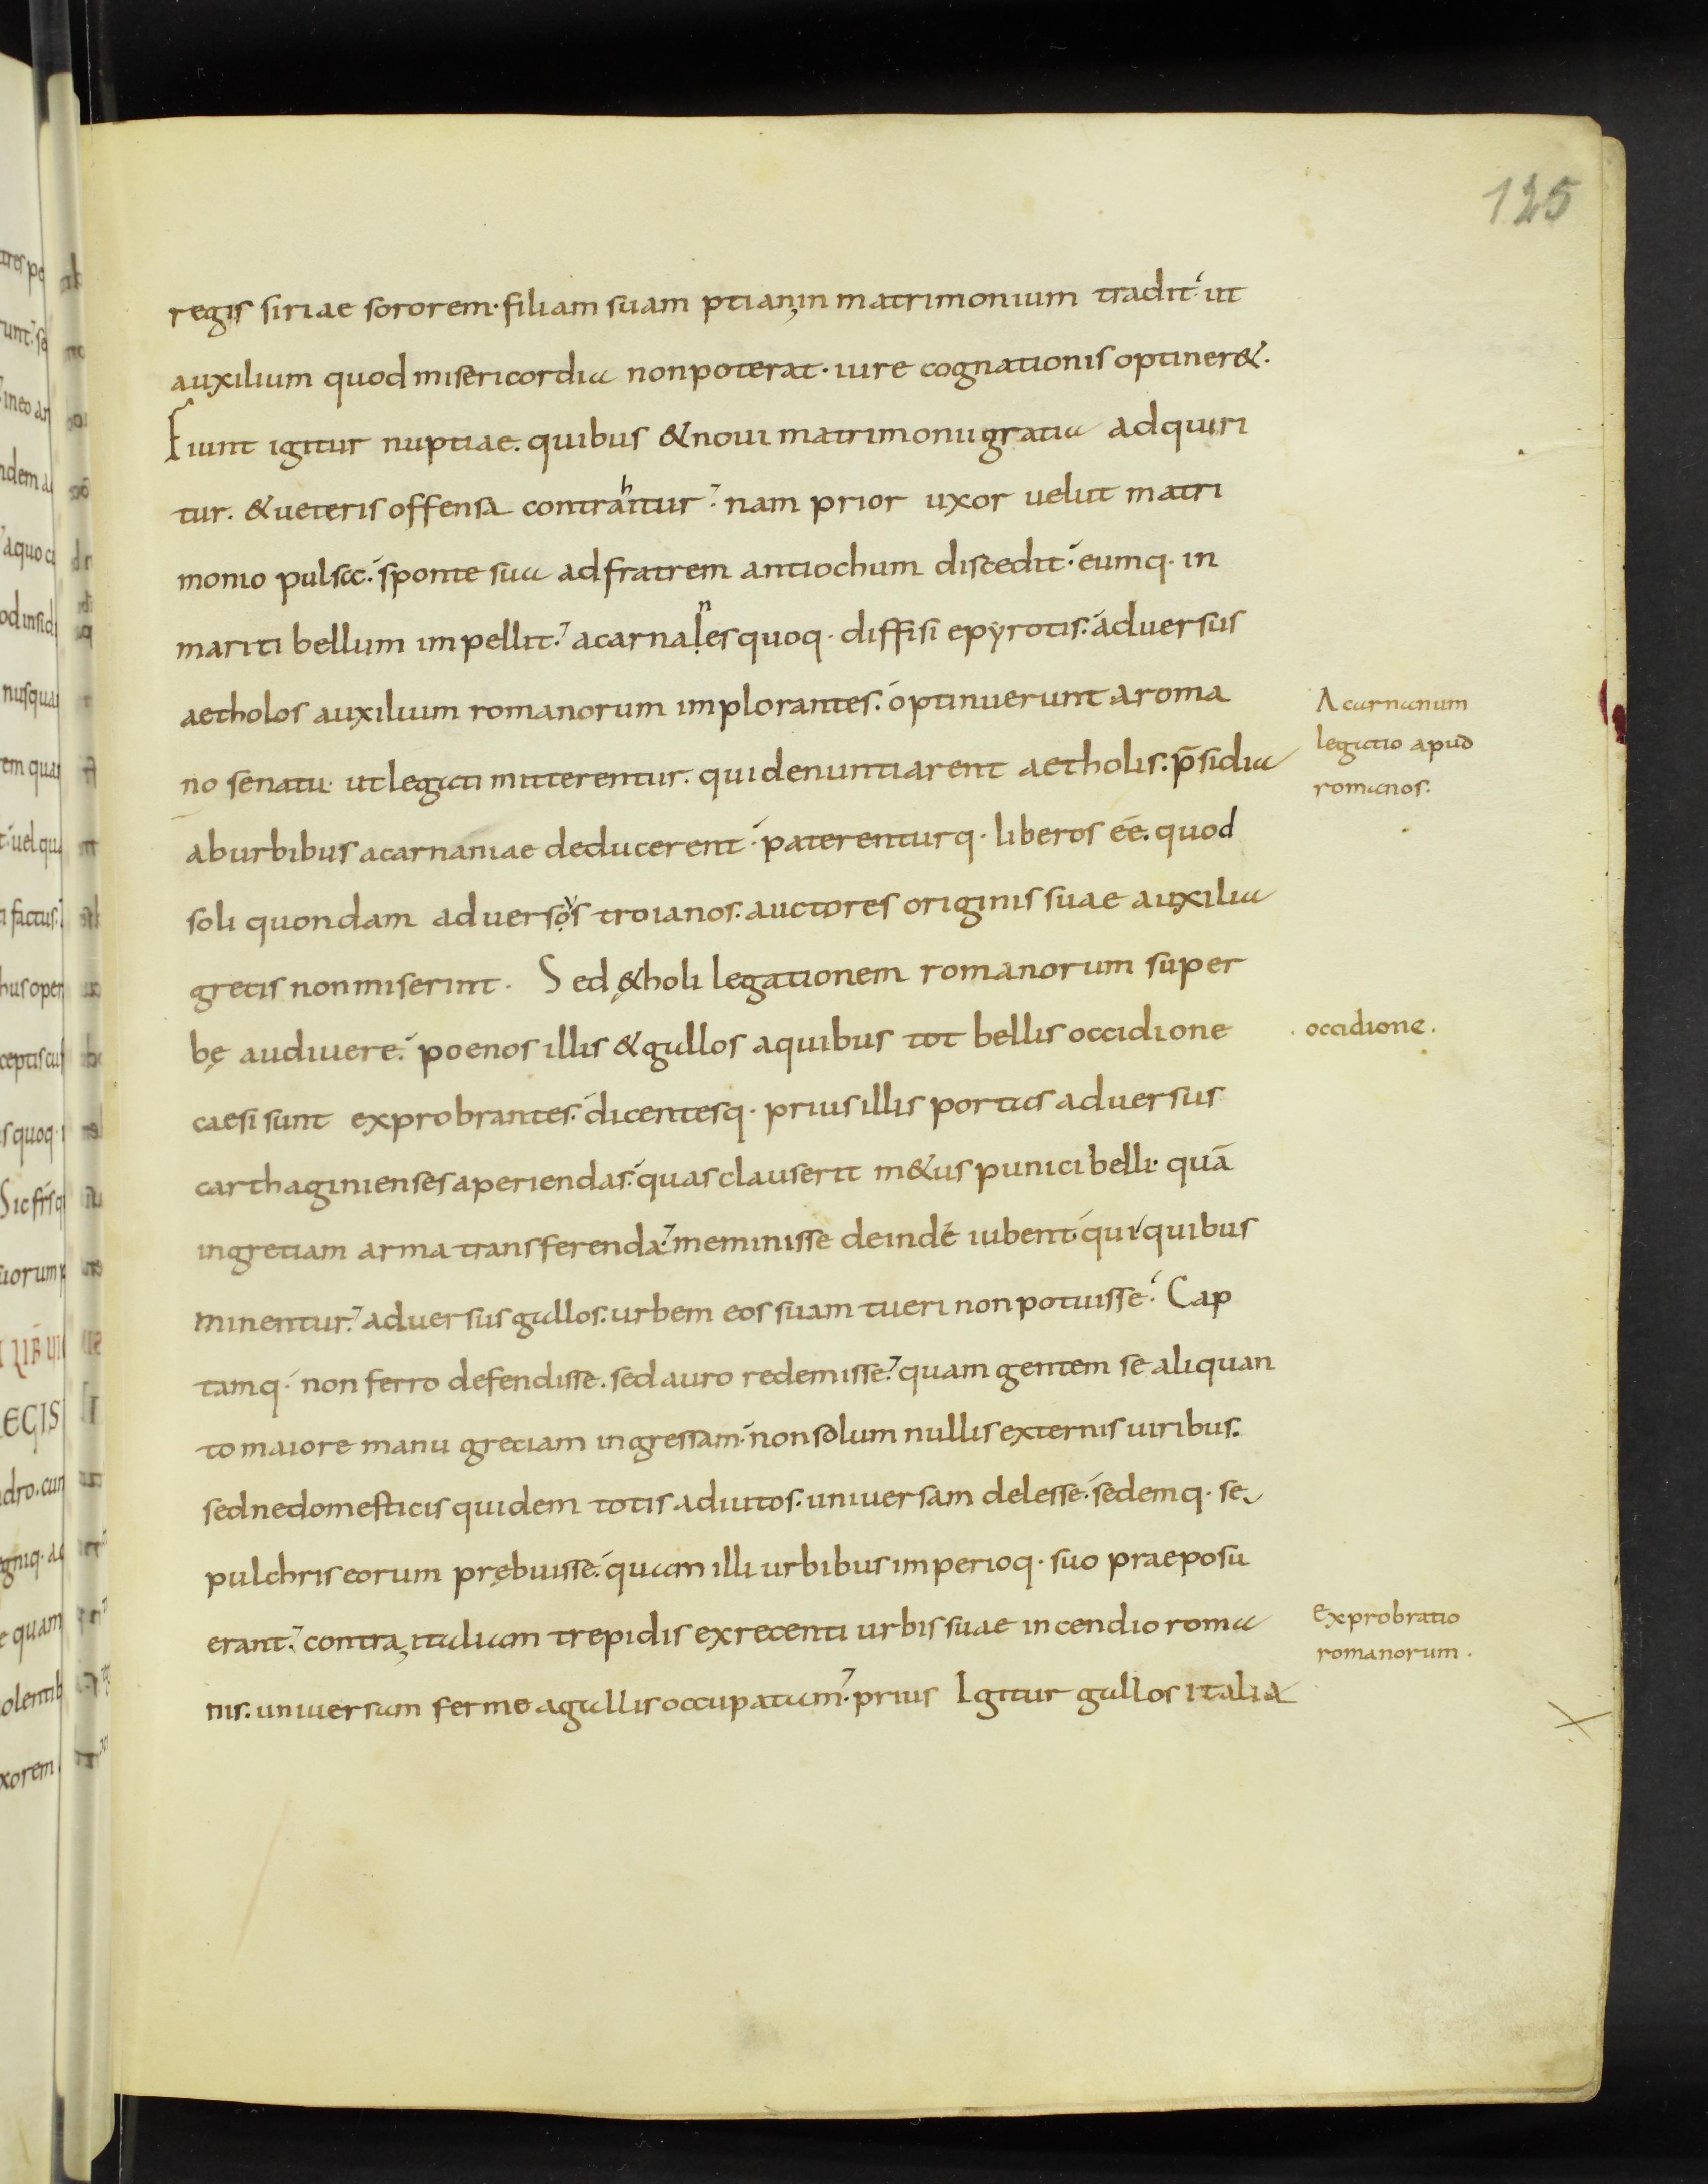 125
regis siriae sororem· filiam suam ptian, in matrimonium tradit· ut
auxilium quod misericordia non poterat· iure cognationis optiner&.
Fiunt igitur nuptiae. quibus & noui matrimonii gratia adquiri
tur. & ueteris offensa contrahitur? nam prior uxor uelut matri
monio pulsa. sponte sua ad fratrem antiochum discedit· eumq· in
mariti bellum impellit? acarnalnes quoq· diffisi epyrotis. aduersus
aetholos auxilium romanorum implorantes. optinuerunt a roma
no senatu· ut legati mitterentur. qui denuntiarent aetholis. p̄sidia
ab urbibus acarnaniae deducerent· paterenturq· liberos eé. quod
soli quondam aduersous troianos. auctores originis suae auxilia
gretis non miserint. Sed &holi legationem romanorum super
bę audiuere. poenos illis & gallos a quibus tot bellis occidione
caesi sunt exprobrantes. dicentesq· prius illis portas aduersus
carthaginienses aperiendas. quas clauserit m&us punici belli· quā
in gretiam arma transferenda? meminisse deinde iubent qui quibus
minentur? aduersus gallos. urbem eos suam tueri non potuisse· Cap
tamq· non ferro defendisse. sed auro redemisse? quam gentem se aliquan
to maiore manu gretiam ingressam. non solum nullis externis uiribus.
sed ne domesticis quidem totis adiutos. uniuersam delesse. sedemq· se
pulchris eorum prębuisse. quam illi urbibus imperioq· suo praeposu
erant? contra, italiam trepidis ex recenti urbis suae incendio roma
nis. uniuersam ferme a gallis occupatam? prius Igitur gallos italia
Acarnanum
legatio apud
romanos.
. occidione.
exprobratio
romanorum.